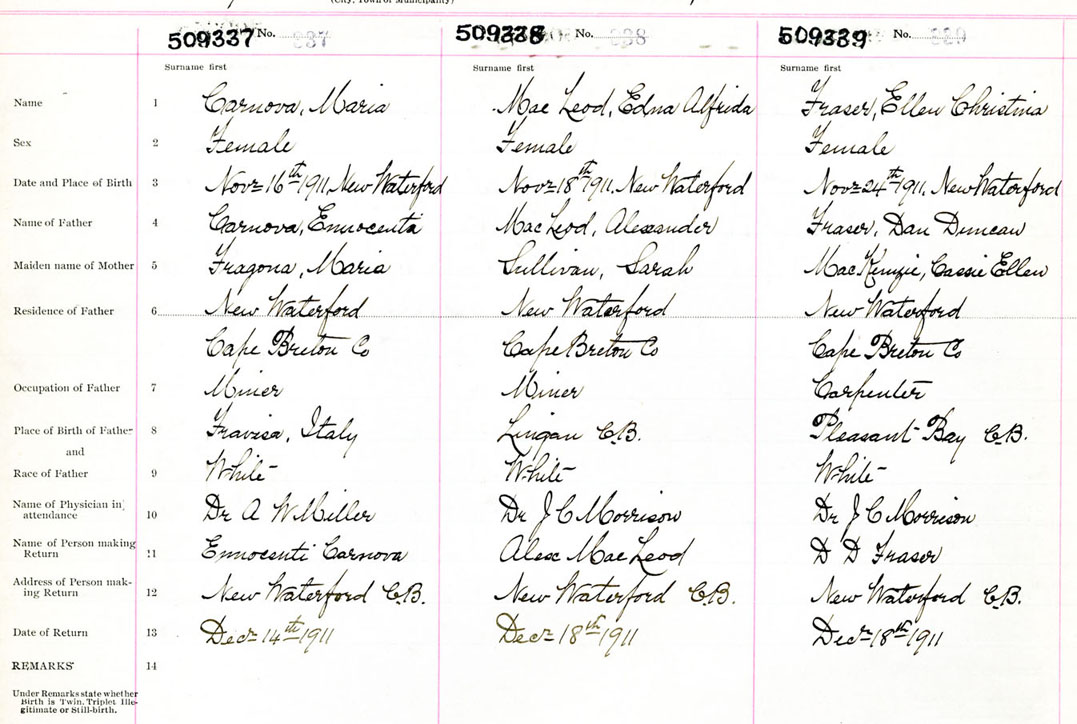 (City, Town or Municipality)
509337 No. 337 509338 No. 338 509339 No. 339
Surname first Surname first Surname first
Name 1 Carnova, Maria Mac Leod, Edna Alfrida Fraser, Ellen Christina
Sex 2 Female Female Female
Date and Place of Birth 3 Novr 16th 1911, New Waterford Novr 18th 1911. New Waterford Novr 24th 1911. New Waterford
Name of Father 4 Carnova, Ennocenta Mac Leod, Alexander Fraser, Dan Duncan
Maiden name of Mother 5 Fragona, Maria Sullivan, Sarah MacKenzie, Cassie Ellen
Residence of Father 6 New Waterford New Waterford New Waterford
Cape Breton Co Cape Breton Co Cape Breton Co
Occupation of Father 7 Miner Miner Carpenter
Place of Birth of Father 8 Fravisa, Italy Lingan C.B. Pleasant Bay C.B.
and
Race of Father 9 White White White
Name of Physician in
attendance 10 Dr A W Miller Dr J C Morrison Dr J C Morrison
Name of Person making
Return 11 Ennocenti Carnova Alex Mac Leod D D Fraser
Address of Person mak-
ing Return 12 New Waterford C.B. New Waterford C.B. New Waterford C.B.
Date of Return 13 Decr 14th 1911 Decr 18th 1911 Decr 18th 1911
REMARKS 14
Under Remarks state whether
Birth is Twin, Triplet Ille-
gitimate or Still-birth.